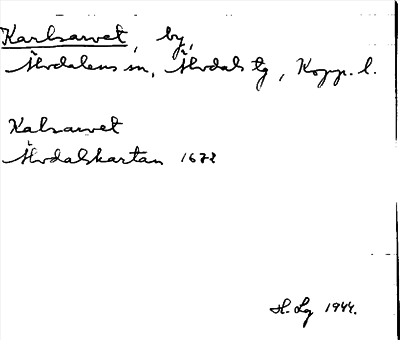 Karlsarvet, by,
Älvdalens sn, Älvdals tg, Kopp. l.
Kalsarvet
Älvdalskartan 1672
H. Lg 1944.